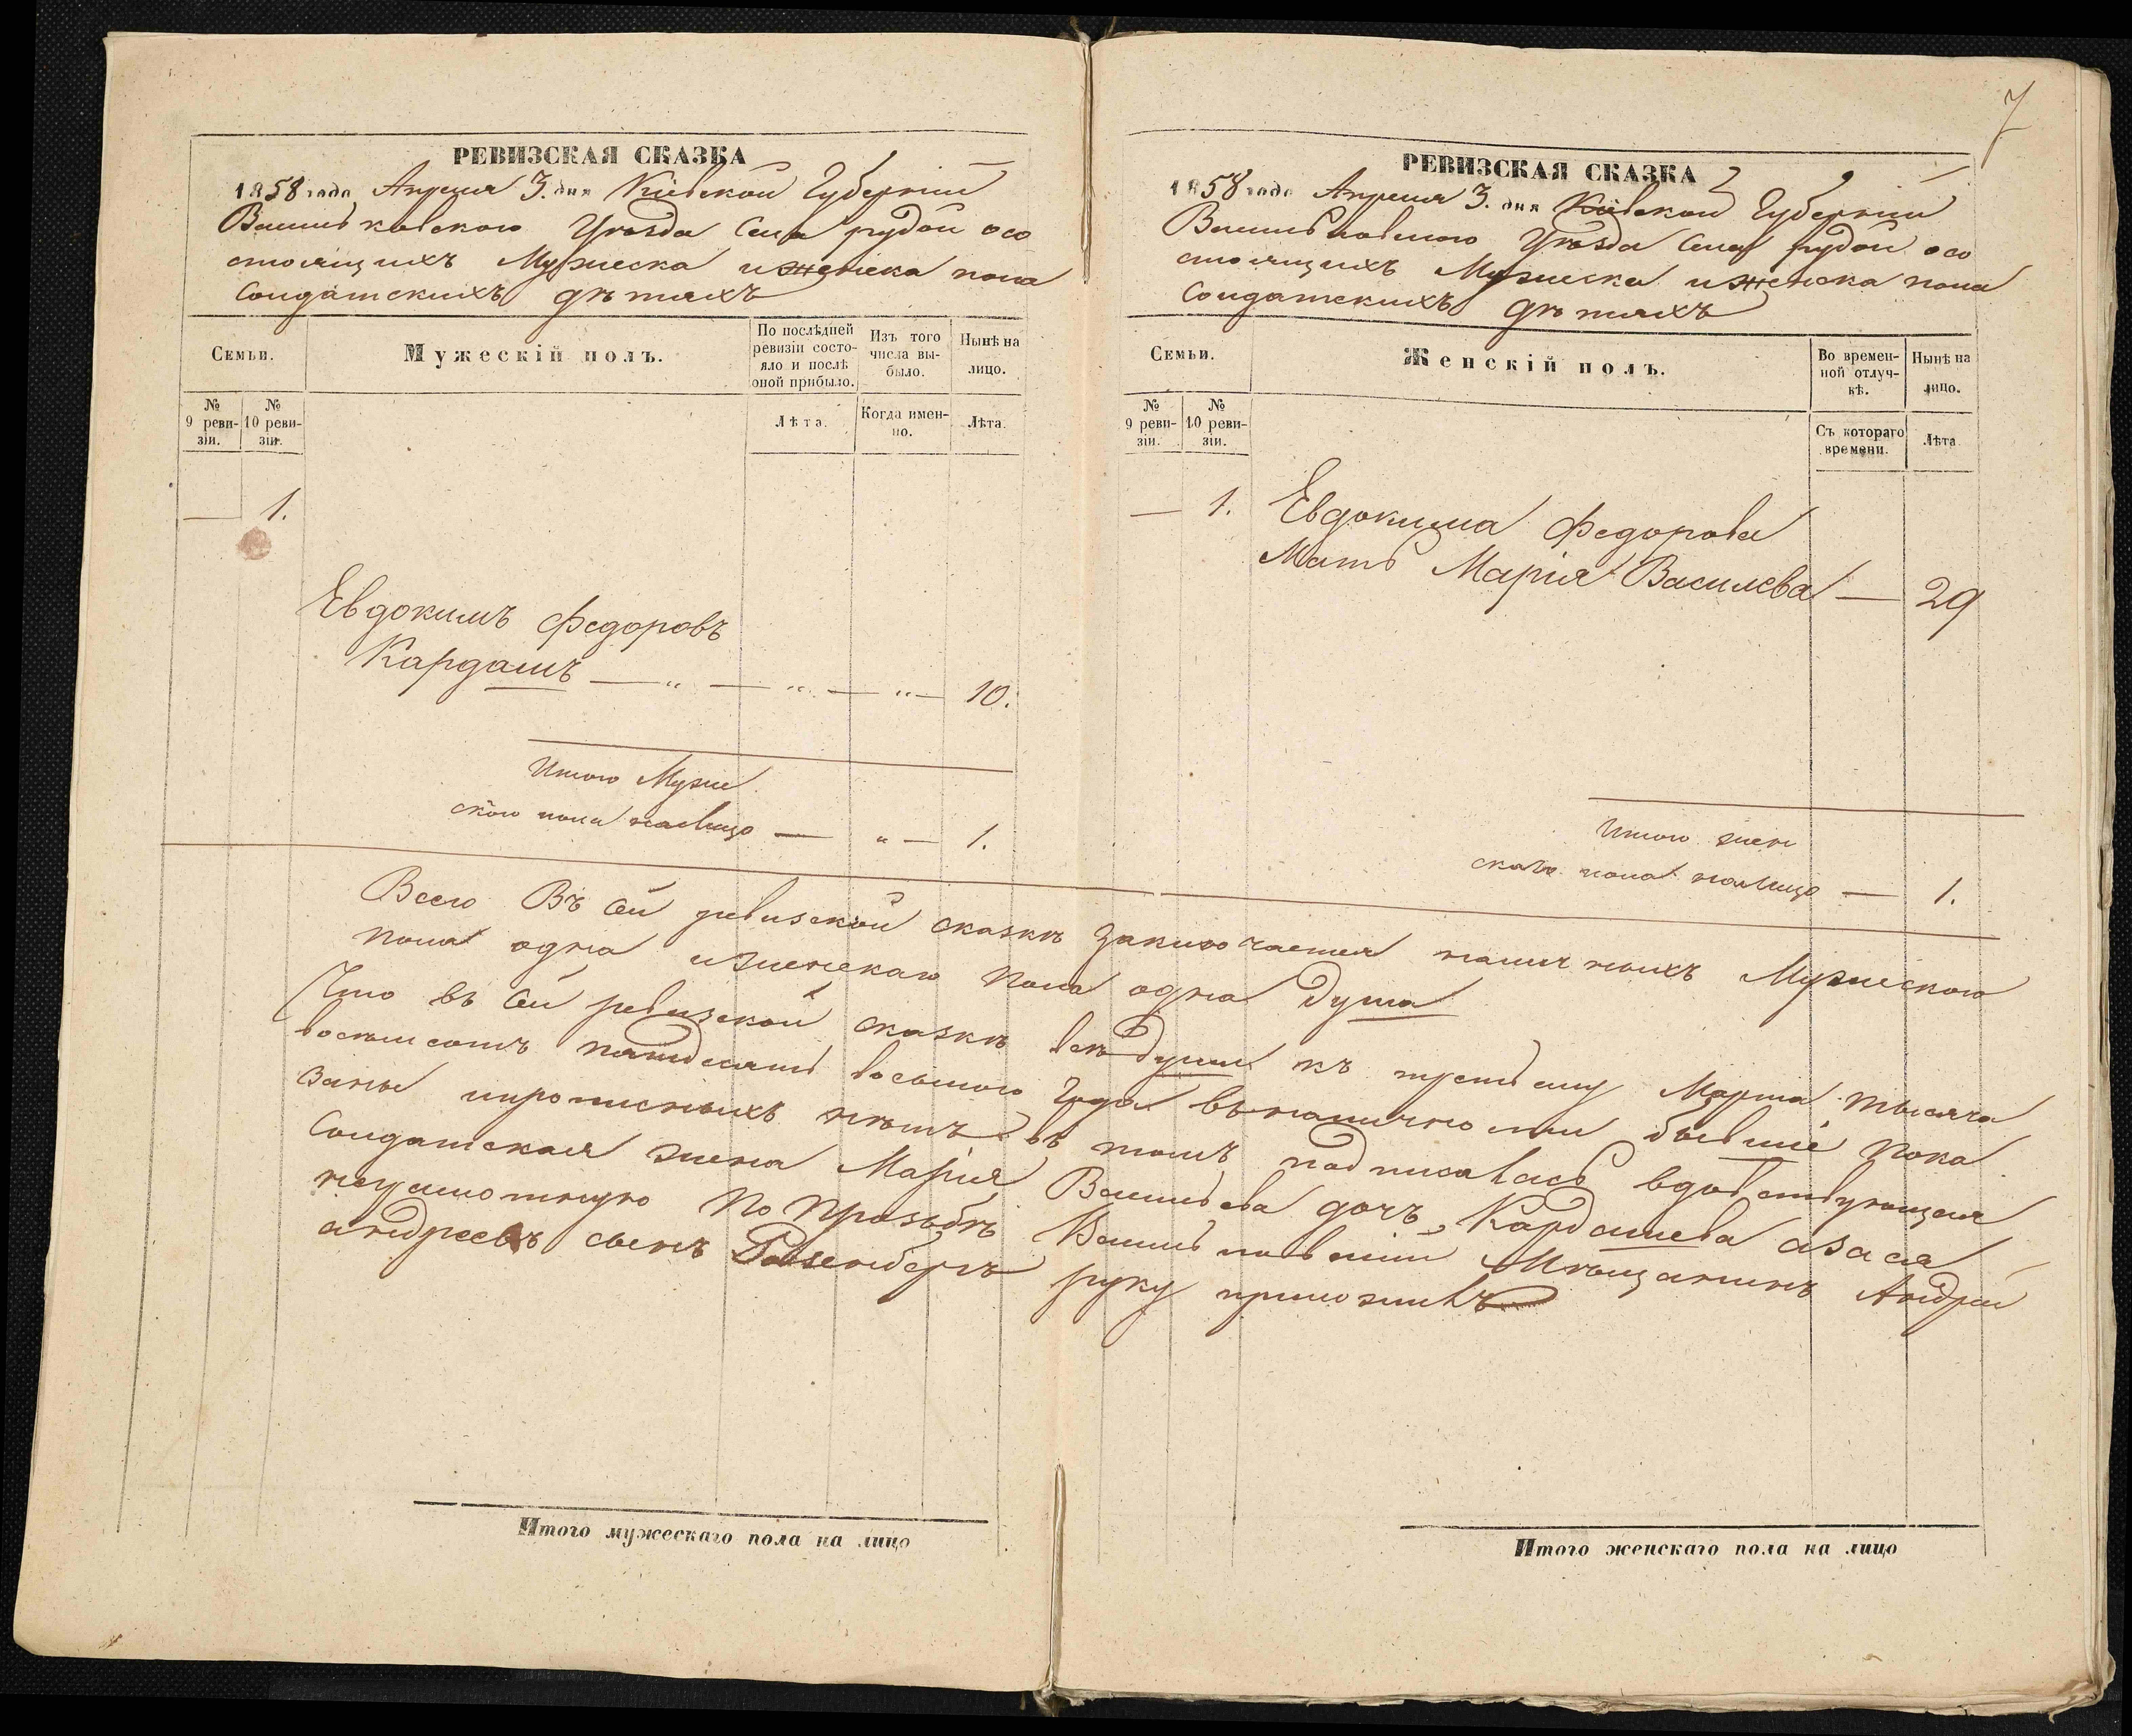 РЕВИЗСКАЯ СКАЗКА
1858 года Апреля 3. дня Кіевской Губерніи
Васильковского Уѣзда Села рудой осо
стоящихъ Мужеска и женска пола
Солдатскихъ дѣтяхъ
Семьи.
Мужескій полъ.
По послѣдней ревизіи состо-
яло и послѣ оной прибыло.
Изъ того числа вы-
было.
Нынѣ на лицо.
№ 9 реви-
зіи.
№ 10 реви-
зіи.
Лѣта.
Когда имен-
но.
Лѣта.
— 1.
Евдокимъ Федоровъ
Кардашъ — „ — „ — „ — 10.
Итого Муже
ского пола налицо — „ — 1.
7
РЕВИЗСКАЯ СКАЗКА
1858 года Апреля 3. дня Кіевской Губерніи
Васильковского Уѣзда Села рудой осо
стоящихъ Мужеска и женска пола
Солдатскихъ дѣтяхъ
Семьи.
Женскій полъ.
Во времен-
ной отлуч-
кѣ.
Нынѣ на лицо.
№ 9 реви-
зіи.
№ 10 реви-
зіи.
Съ котораго времени.
Лѣта
— 1. Евдокима Федорова
Мать Марія Василева — 29
Итого жен
скаго пола налицо — 1.
Всего Въ сей ревизской сказкѣ заключается наличныхъ Мужеского
пола одна и женскаго пола одна душа
Что въ сей ревизской сказкѣ всѣ души къ третьему Марта тысяча
восемьсотъ пятдесятъ восьмого Года въ наличности бывшіе пока
заны и прописныхъ нѣтъ въ томъ подписалась вдовствующая
Солдатская жена Марія Васильева дочъ Кардашева а за ея
неграмотную по прозьбѣ Васильковскій Мѣщанинъ Андрей
андреевъ сынъ Розенбергъ руку приложилъ
Итого мужескаго пола на лицо
Итого женскаго пола на лицо